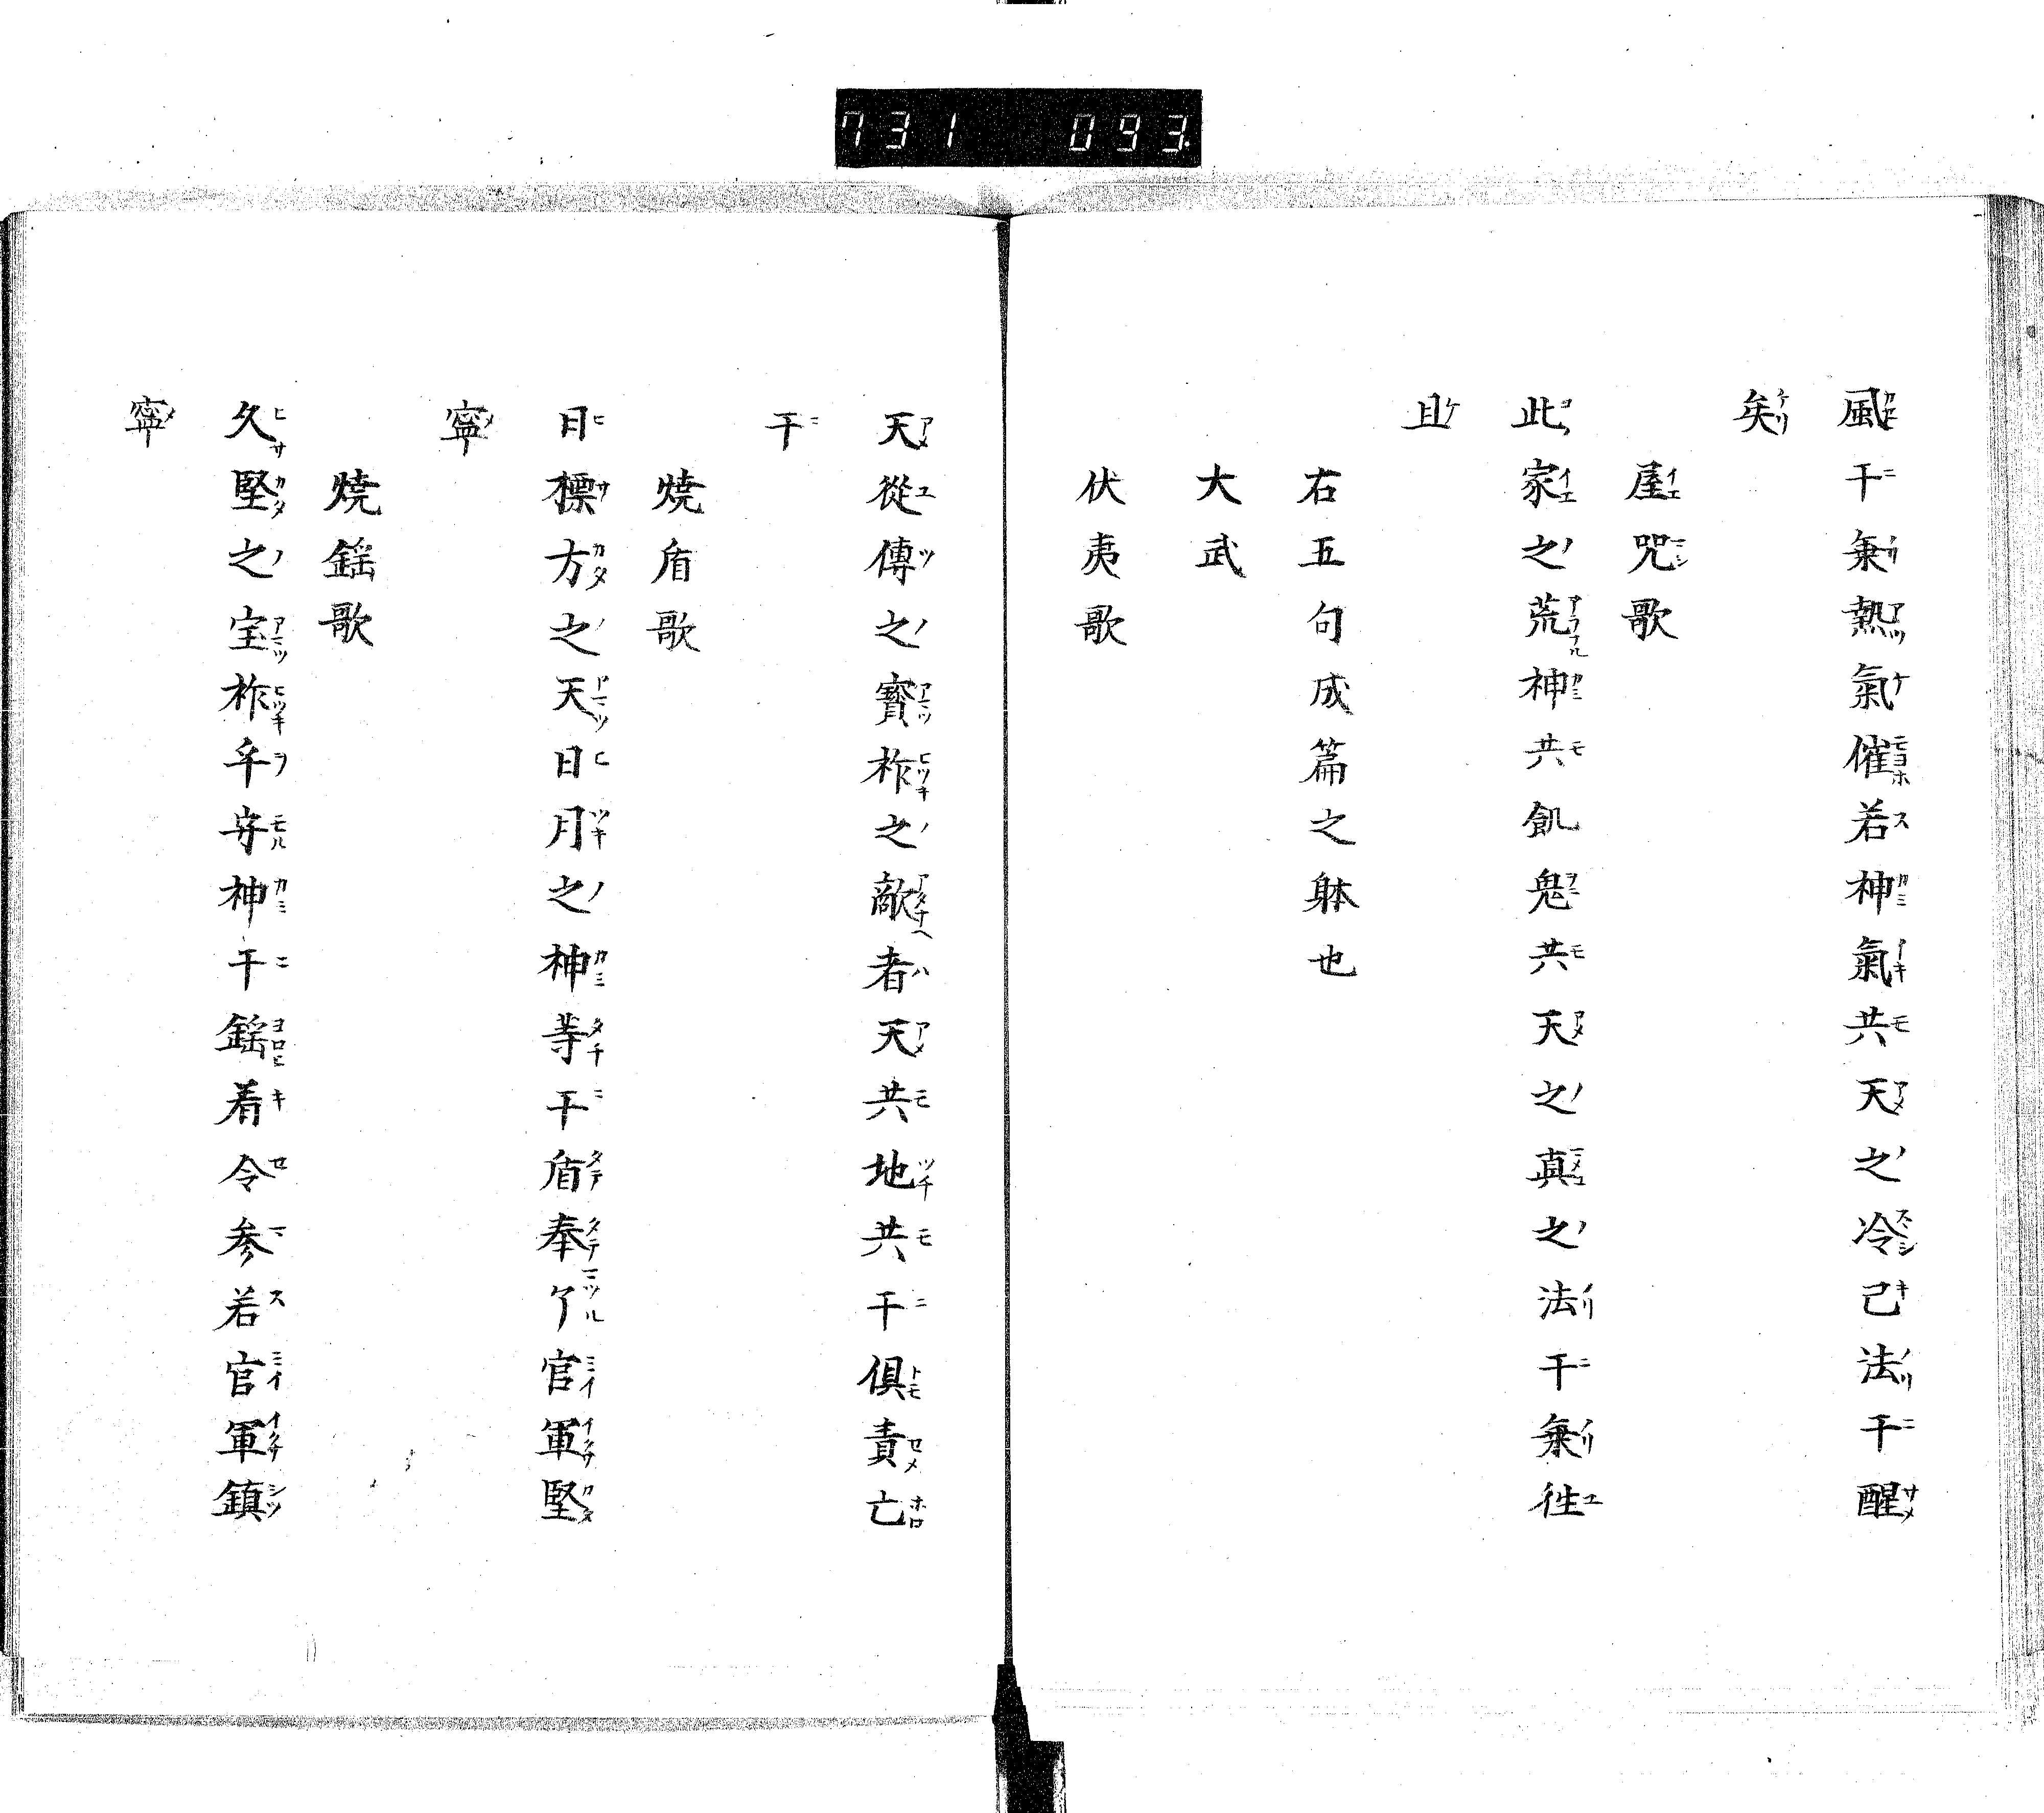 731 093
風干乗熱氣催若神氣共天之冷己法干醒
矣
屋咒歌
此家之荒神共飢鬼共天之真之法干乗徃
且
右五句成篇之躰也
大武
伏夷歌
天從傳之寳祚之敵者天共地共干倶責亡
干
焼盾歌
日標方之天日月之神等干盾奉了官軍堅
寧
焼鎐歌
久堅之宝祚乎守神干鎐着令参若官軍鎮
寧